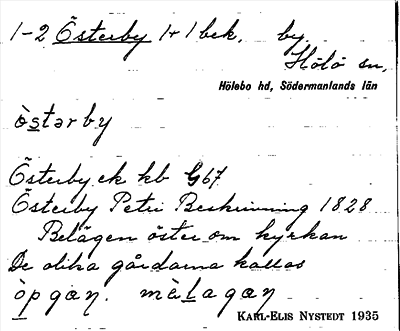 1-2 Österby 1+1 bck. by
Hölö sn,
Hölebo hd, Södermanlands län
ò̀stərby
Österby ek kb G67
Österby Petri Beskrivning 1828
Belägen öster om kyrkan
De olika gårdarna kallas
òpgan. mèlagan
KARL-ELIS NYSTEDT 1935